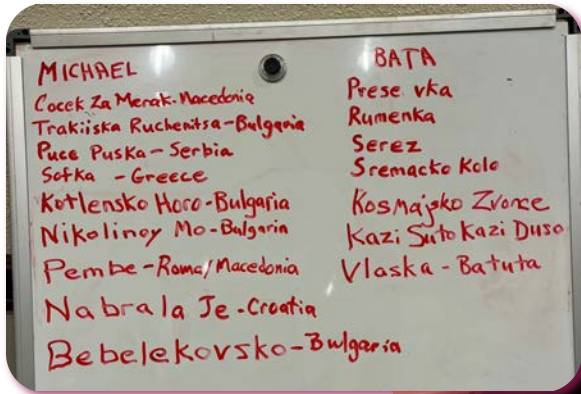 MICHAEL
Cocek Za Merak-Macedonia
Trakiiska Ruchenitsa-Bulgaria
Puce Puska-Serbia
Sofka -Greece
Kotlensko Horo-Bulgaria
Nikolinoy Mo-Bulgaria
Pembe-Roma/Macedonia
Nabrala Je-Croatia
Bebelekovsko-Bulgaria
BATA
Prese vka
Rumenka
Serez
Sremacko Kolo
Kosmajsko Zvonce
Kazi Suto Kazi Duso
Vlaska-Batuta